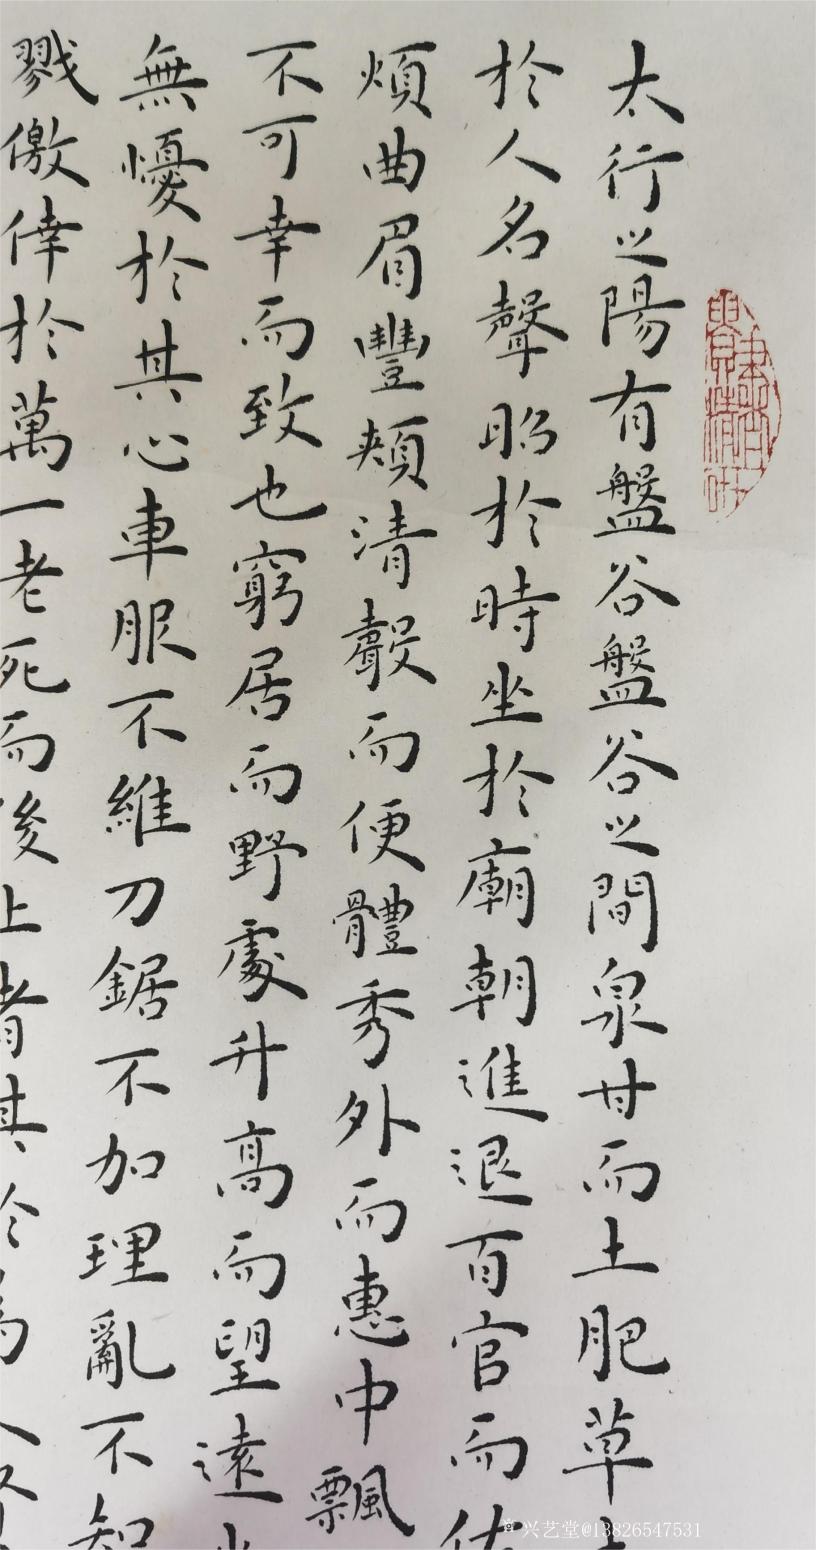 太行之陽有盤谷盤谷之間泉甘而土肥草
於人名聲昭於時坐於廟朝進退百官而佐
煩曲眉豐頰清聲而便體秀外而惠中飄
不可幸而致也窮居而野處升高而望遠
無憂於其心車服不維刀鋸不加理亂不知
戮儌倖於萬一老死而後止者其於為人
兴艺堂@13826547531